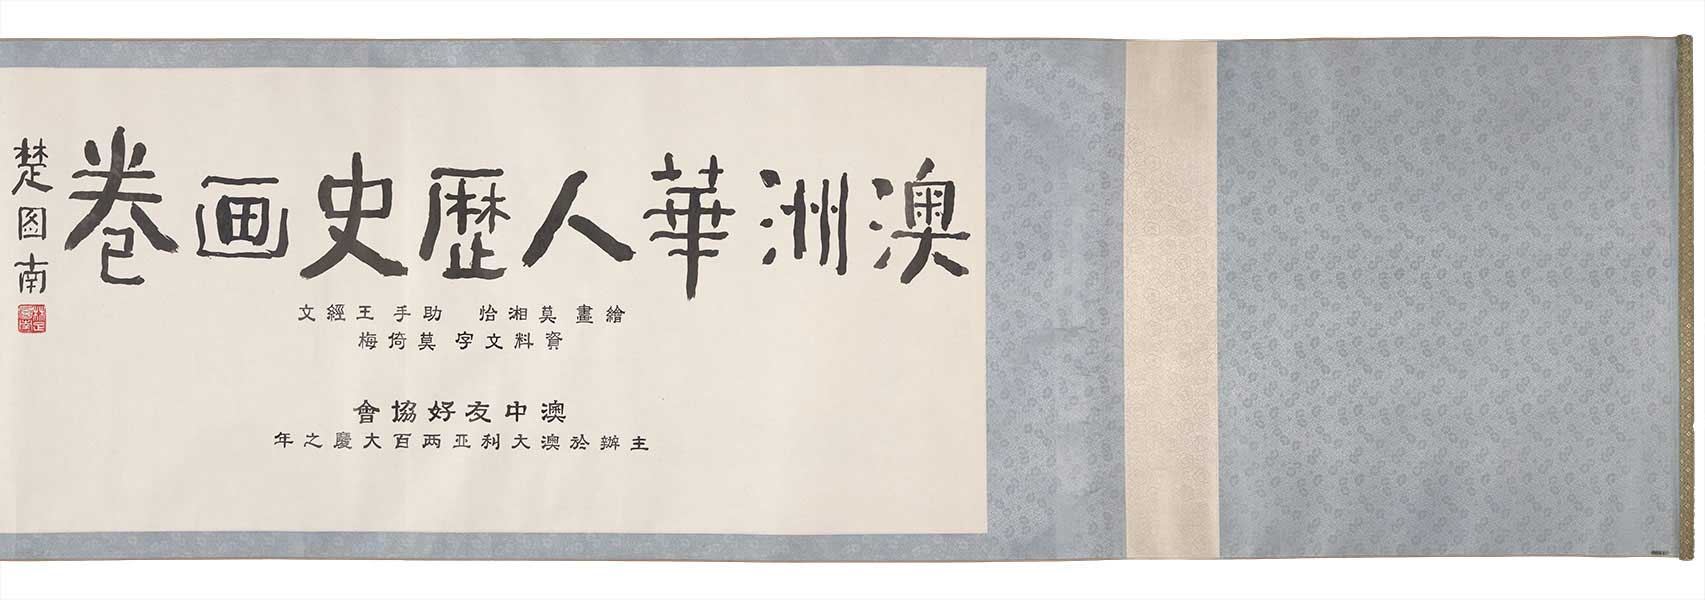 澳洲華人歴史画卷
楚图南
繪畫 莫湘怡 助手 王經文
資料文字 莫倚梅
澳中友好協會
主辦於澳大利亚两百大慶之年